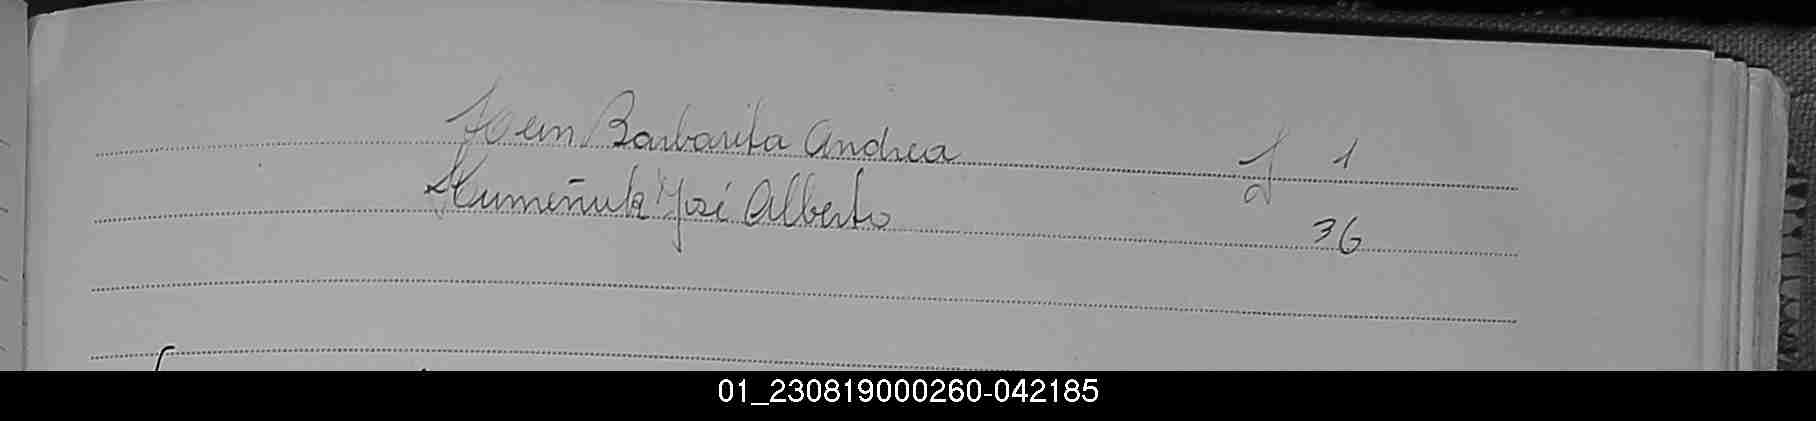 Hein Barbarita Andrea J 1
Humeñuk José Alberto 36
01_230819000260-042185